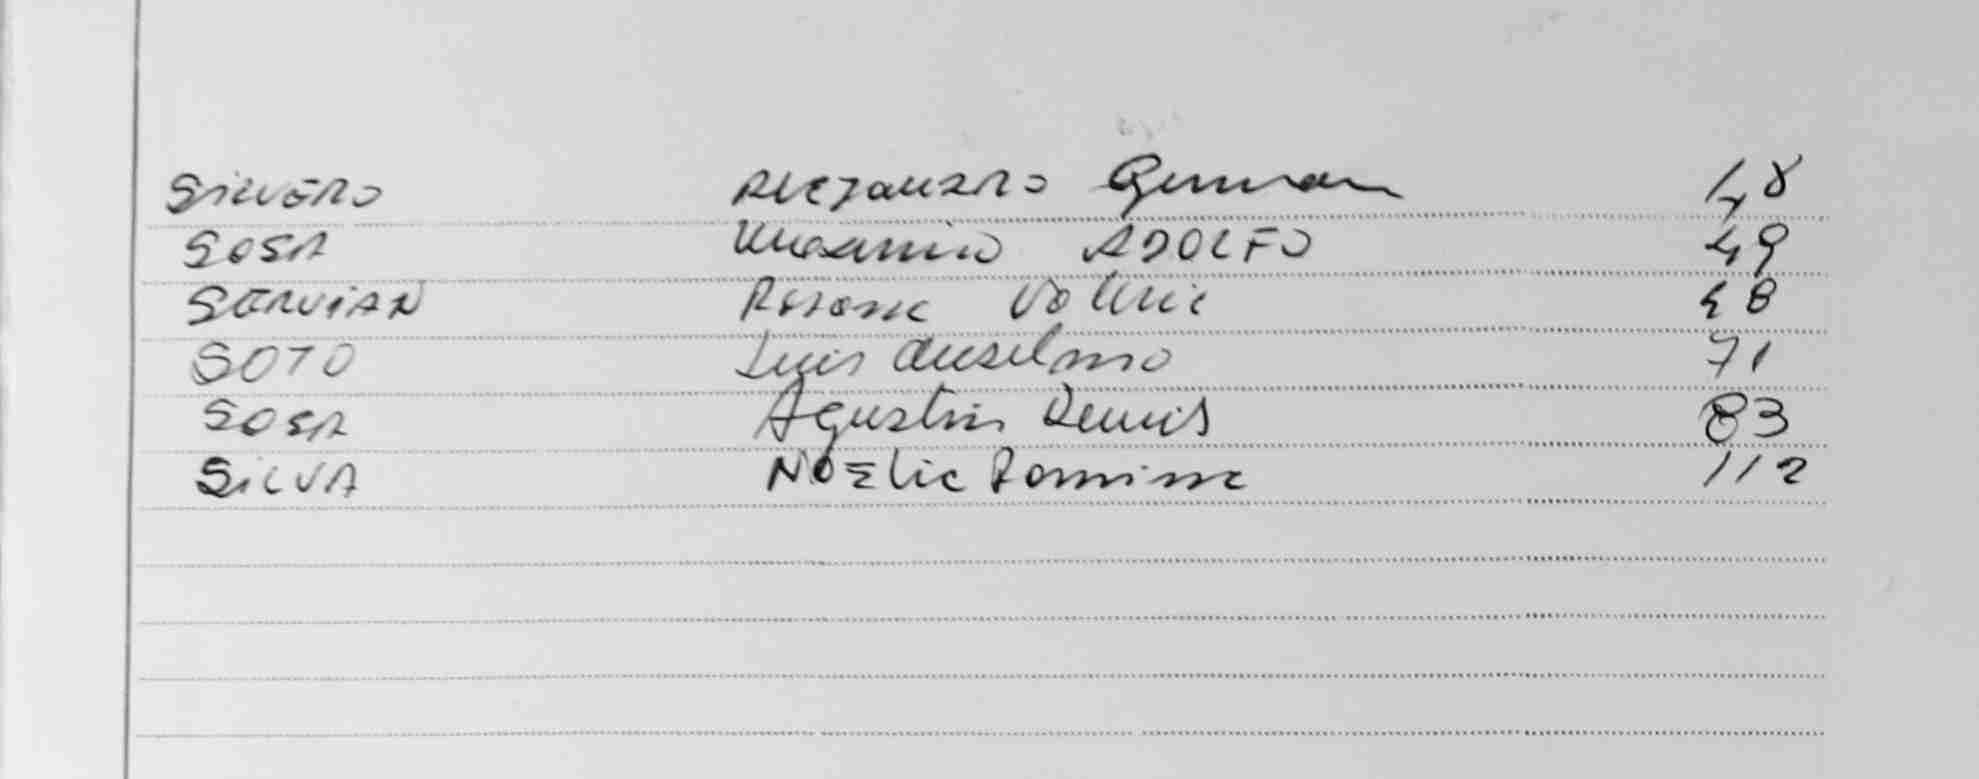 SILVERO Alejandro German 48
SOSA ADOLFO 49
SERVIAN Rosana Valeria 48
SOTO Luis Anselmo 71
SOSA Agustin Denis 83
SILVA NOELia Romina 112